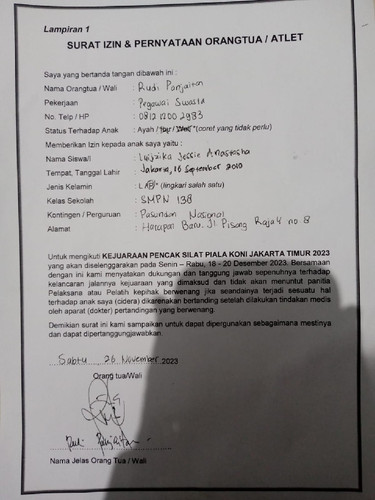 Lampiran 1
SURAT IZIN & PERNYATAAN ORANGTUA / ATLET
Saya yang bertanda tangan dibawah ini :
Nama Orangtua / Wali : Rudi Panjaitan
Pekerjaan : Pegawai Swasta
No. Telp / HP : 0812 1200 2983
Status Terhadap Anak : Ayah / Ibu / Wali *(coret yang tidak perlu)
Memberikan Izin kepada anak saya yaitu :
Nama Siswa/i : Jessie Anastasha
Tempat, Tanggal Lahir : Jakarta, 16 September 2010
Jenis Kelamin : L / P * (lingkari salah satu)
Kelas Sekolah : SMPN 138
Kontingen / Perguruan : Pasundan Nasional
Alamat : Harapan Baru. Jl Pisang Rajak no 8
Untuk mengikuti KEJUARAAN PENCAK SILAT PIALA KONI JAKARTA TIMUR 2023
yang akan diselenggarakan pada Senin – Rabu, 18 - 20 Desember 2023. Bersamaan
dengan ini kami menyatakan dukungan dan tanggung jawab sepenuhnya terhadap
kelancaran jalannya kejuaraan yang dimaksud dan tidak akan menuntut panitia
Pelaksana atau Pelatih kepihak berwenang jika seandainya terjadi sesuatu hal
terhadap anak saya (cidera) dikarenakan bertanding setelah dilakukan tindakan medis
oleh aparat (dokter) pertandingan yang berwenang.
Demikian surat ini kami sampaikan untuk dapat dipergunakan sebagaimana mestinya
dan dapat dipertanggungjawabkan.
Sabtu 26 November 2023
Orang tua/Wali
Rudi Panjaitan
Nama Jelas Orang Tua / Wali